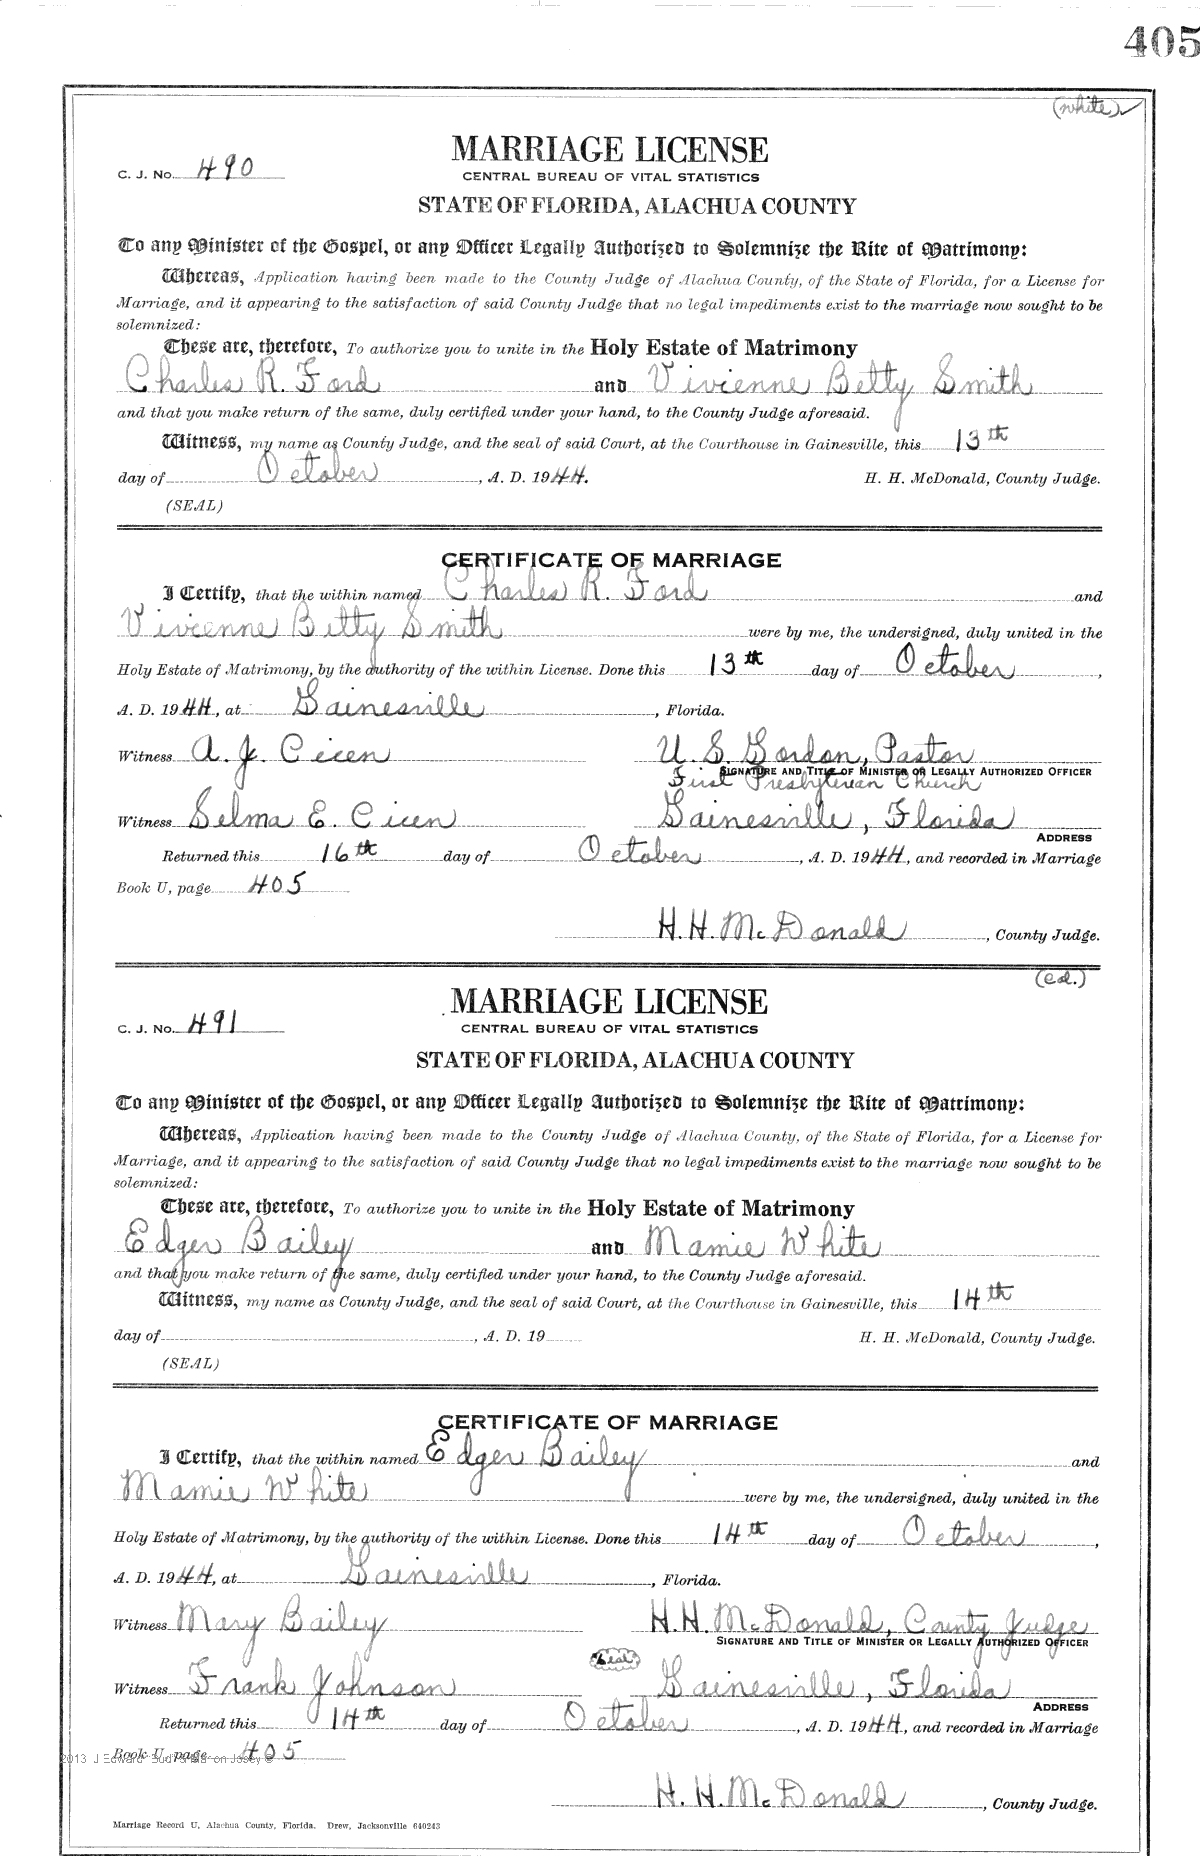 405
(white)
MARRIAGE LICENSE
C. J. No. 490
CENTRAL BUREAU OF VITAL STATISTICS
STATE OF FLORIDA, ALACHUA COUNTY
To any Minister of the Gospel, or any Officer Legally Authorized to Solemnize the Rite of Matrimony:
Whereas, Application having been made to the County Judge of Alachua County, of the State of Florida, for a License for
Marriage, and it appearing to the satisfaction of said County Judge that no legal impediments exist to the marriage now sought to be
solemnized:
These are, therefore, To authorize you to unite in the Holy Estate of Matrimony
Charles R. Ford and Vivienne Betty Smith
and that you make return of the same, duly certified under your hand, to the County Judge aforesaid.
Witness, my name as County Judge, and the seal of said Court, at the Courthouse in Gainesville, this 13th
day of October, A. D. 1944. H. H. McDonald, County Judge.
(SEAL)
CERTIFICATE OF MARRIAGE
I Certify, that the within named Charles R. Ford and
Vivienne Betty Smith were by me, the undersigned, duly united in the
Holy Estate of Matrimony, by the authority of the within License. Done this 13th day of October,
A. D. 1944, at Gainesville, Florida.
Witness A. J. Cicen U. S. Gordon, Pastor
SIGNATURE AND TITLE OF MINISTER OR LEGALLY AUTHORIZED OFFICER
First Presbyterian Church
Witness Selma E. Cicen Gainesville, Florida
ADDRESS
Returned this 16th day of October, A. D. 1944, and recorded in Marriage
Book U, page 405
H. H. McDonald, County Judge.
(cd.)
MARRIAGE LICENSE
C. J. No. 491
CENTRAL BUREAU OF VITAL STATISTICS
STATE OF FLORIDA, ALACHUA COUNTY
To any Minister of the Gospel, or any Officer Legally Authorized to Solemnize the Rite of Matrimony:
Whereas, Application having been made to the County Judge of Alachua County, of the State of Florida, for a License for
Marriage, and it appearing to the satisfaction of said County Judge that no legal impediments exist to the marriage now sought to be
solemnized:
These are, therefore, To authorize you to unite in the Holy Estate of Matrimony
Edger Bailey and Mamie White
and that you make return of the same, duly certified under your hand, to the County Judge aforesaid.
Witness, my name as County Judge, and the seal of said Court, at the Courthouse in Gainesville, this 14th
day of , A. D. 19 H. H. McDonald, County Judge.
(SEAL)
CERTIFICATE OF MARRIAGE
I Certify, that the within named Edger Bailey and
Mamie White were by me, the undersigned, duly united in the
Holy Estate of Matrimony, by the authority of the within License. Done this 14th day of October,
A. D. 1944, at Gainesville, Florida.
Witness Mary Bailey H. H. McDonald, County Judge
SIGNATURE AND TITLE OF MINISTER OR LEGALLY AUTHORIZED OFFICER
Seal
Witness Frank Johnson Gainesville, Florida
ADDRESS
Returned this 14th day of October, A. D. 1944, and recorded in Marriage
Book U, page 405
H. H. McDonald, County Judge.
Marriage Record U, Alachua County, Florida. Drew, Jacksonville 640243